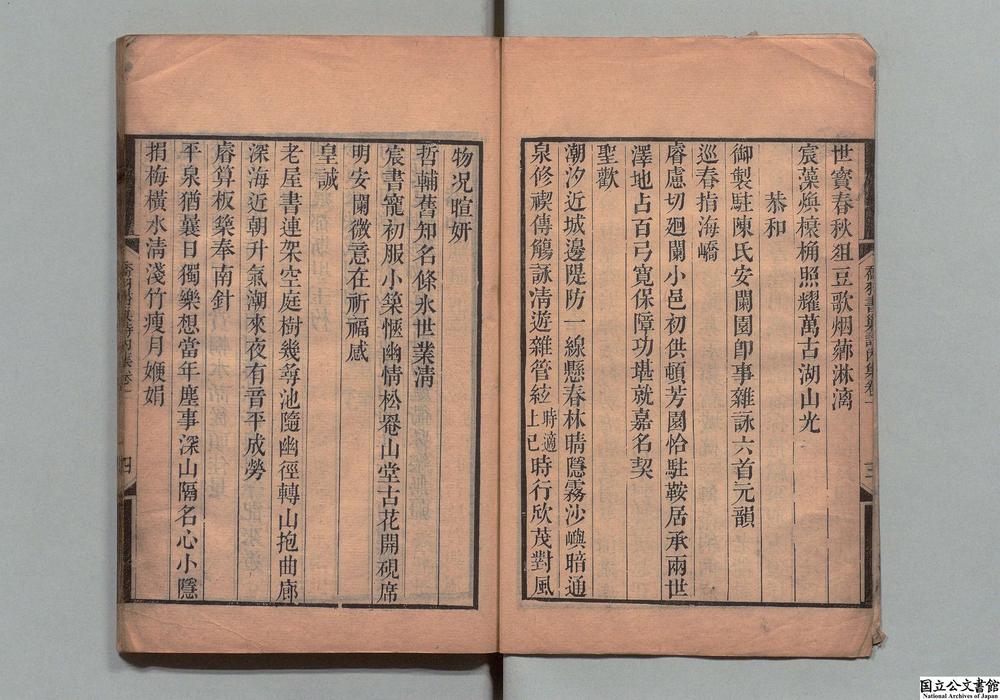 世寶春秋俎豆歌烟蘤淋漓
宸藻煥榱桷照耀萬古湖山光
恭和
御製駐陳氏安闌園卽事雜詠六首元韻
巡春指海嶠
睿慮切廻闌小邑初供頓芳園恰駐鞍居承兩世
澤地占百弓寬保障功堪就嘉名契
聖歡
潮汐近城邊隄防一線懸春林晴隱霧沙嶼暗通
泉修禊傳觴詠清遊雜管絃時適上巳時行欣茂對風
三
物况暄妍
哲輔舊知名條氷世業清
宸書寵初服小築愜幽情松罨山堂古花開硯席
明安闌微意在祈福感
皇誠
老屋書連架空庭樹幾尋池隨幽徑轉山抱曲廊
深海近朝升氣潮來夜有音平成勞
睿算板築奉南針
平泉猶曩日獨樂想當年塵事深山隔名心小隱
捐梅橫水清淺竹瘦月娟娟
四
国立公文書館
National Archives of Japan